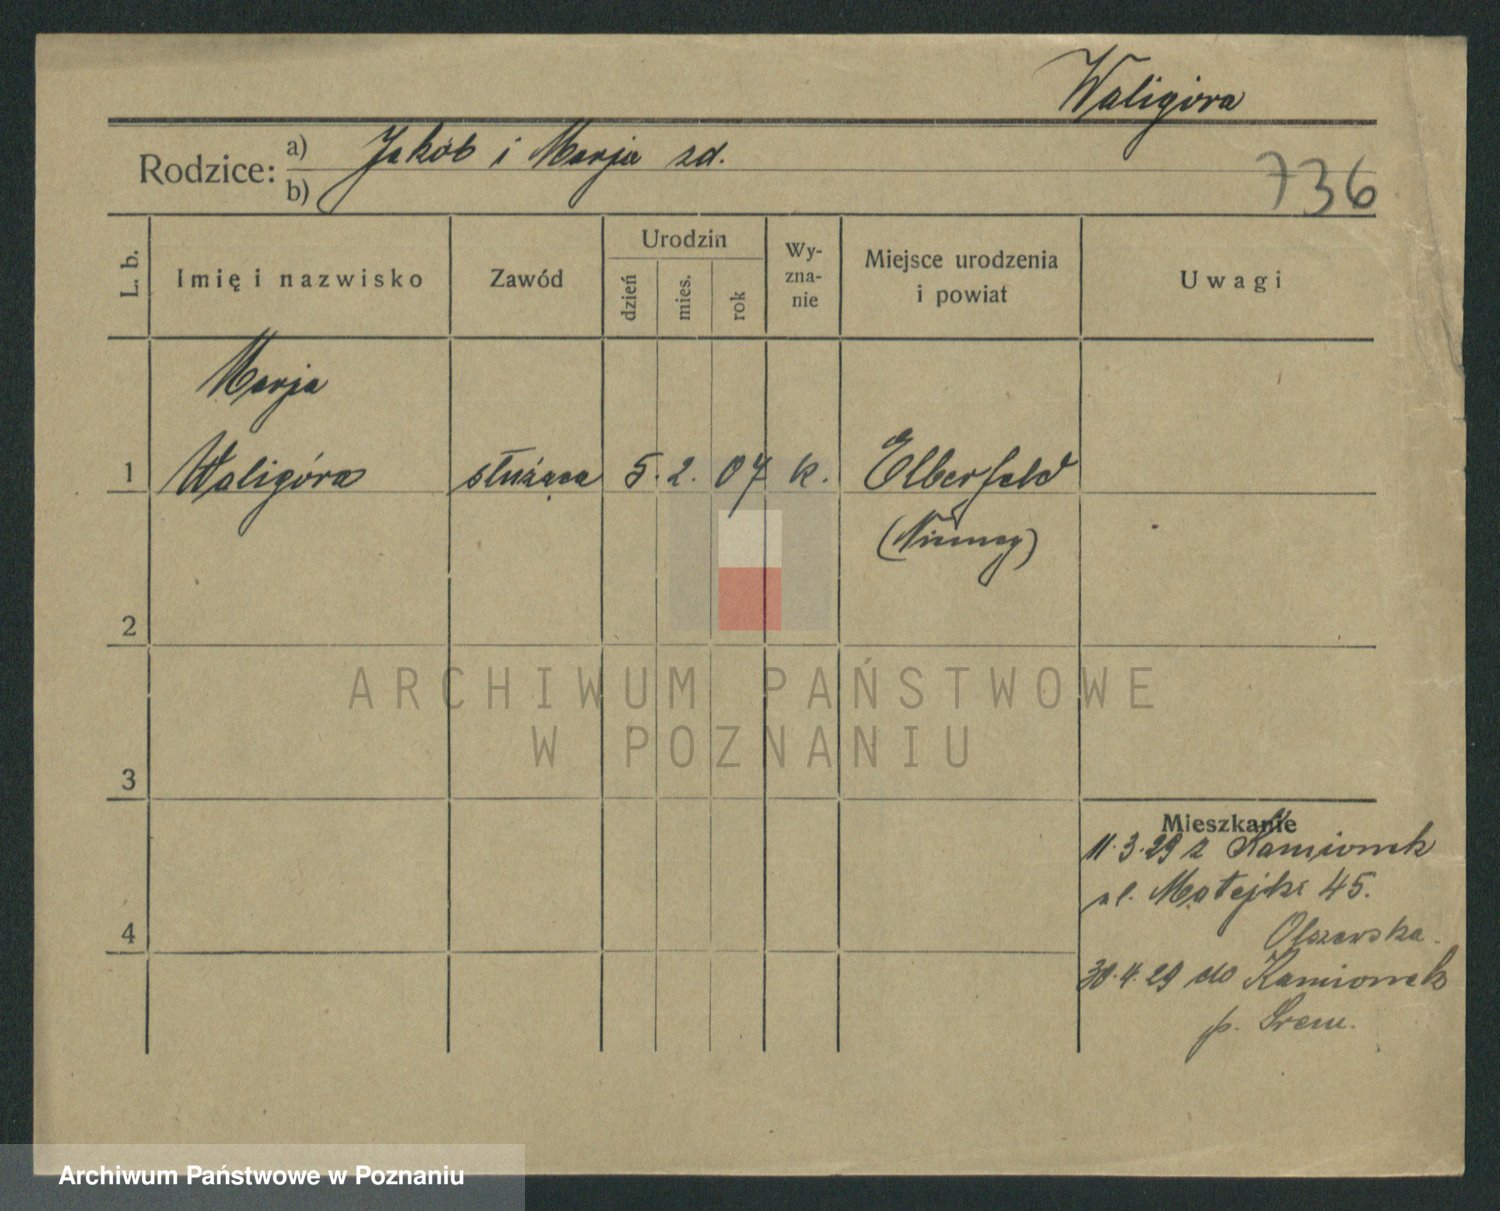 Waligóra
Rodzice: a) Jakób i Marja zd.
b)
736
L. b.
Imię i nazwisko
Zawód
Urodzin
dzień
mies.
rok
Wy-
zna-
nie
Miejsce urodzenia
i powiat
Uwagi
Marja
1 Waligóra służąca 5. 2. 07 k. Elberfeld
(Niemcy)
2
3
4
Mieszkanie
11.3.29 z Kamionek
ul. Matejki 45.
Olszewska.
30.4.29 do Kamionek
p. Śrem.
ARCHIWUM PAŃSTWOWE
W POZNANIU
Archiwum Państwowe w Poznaniu